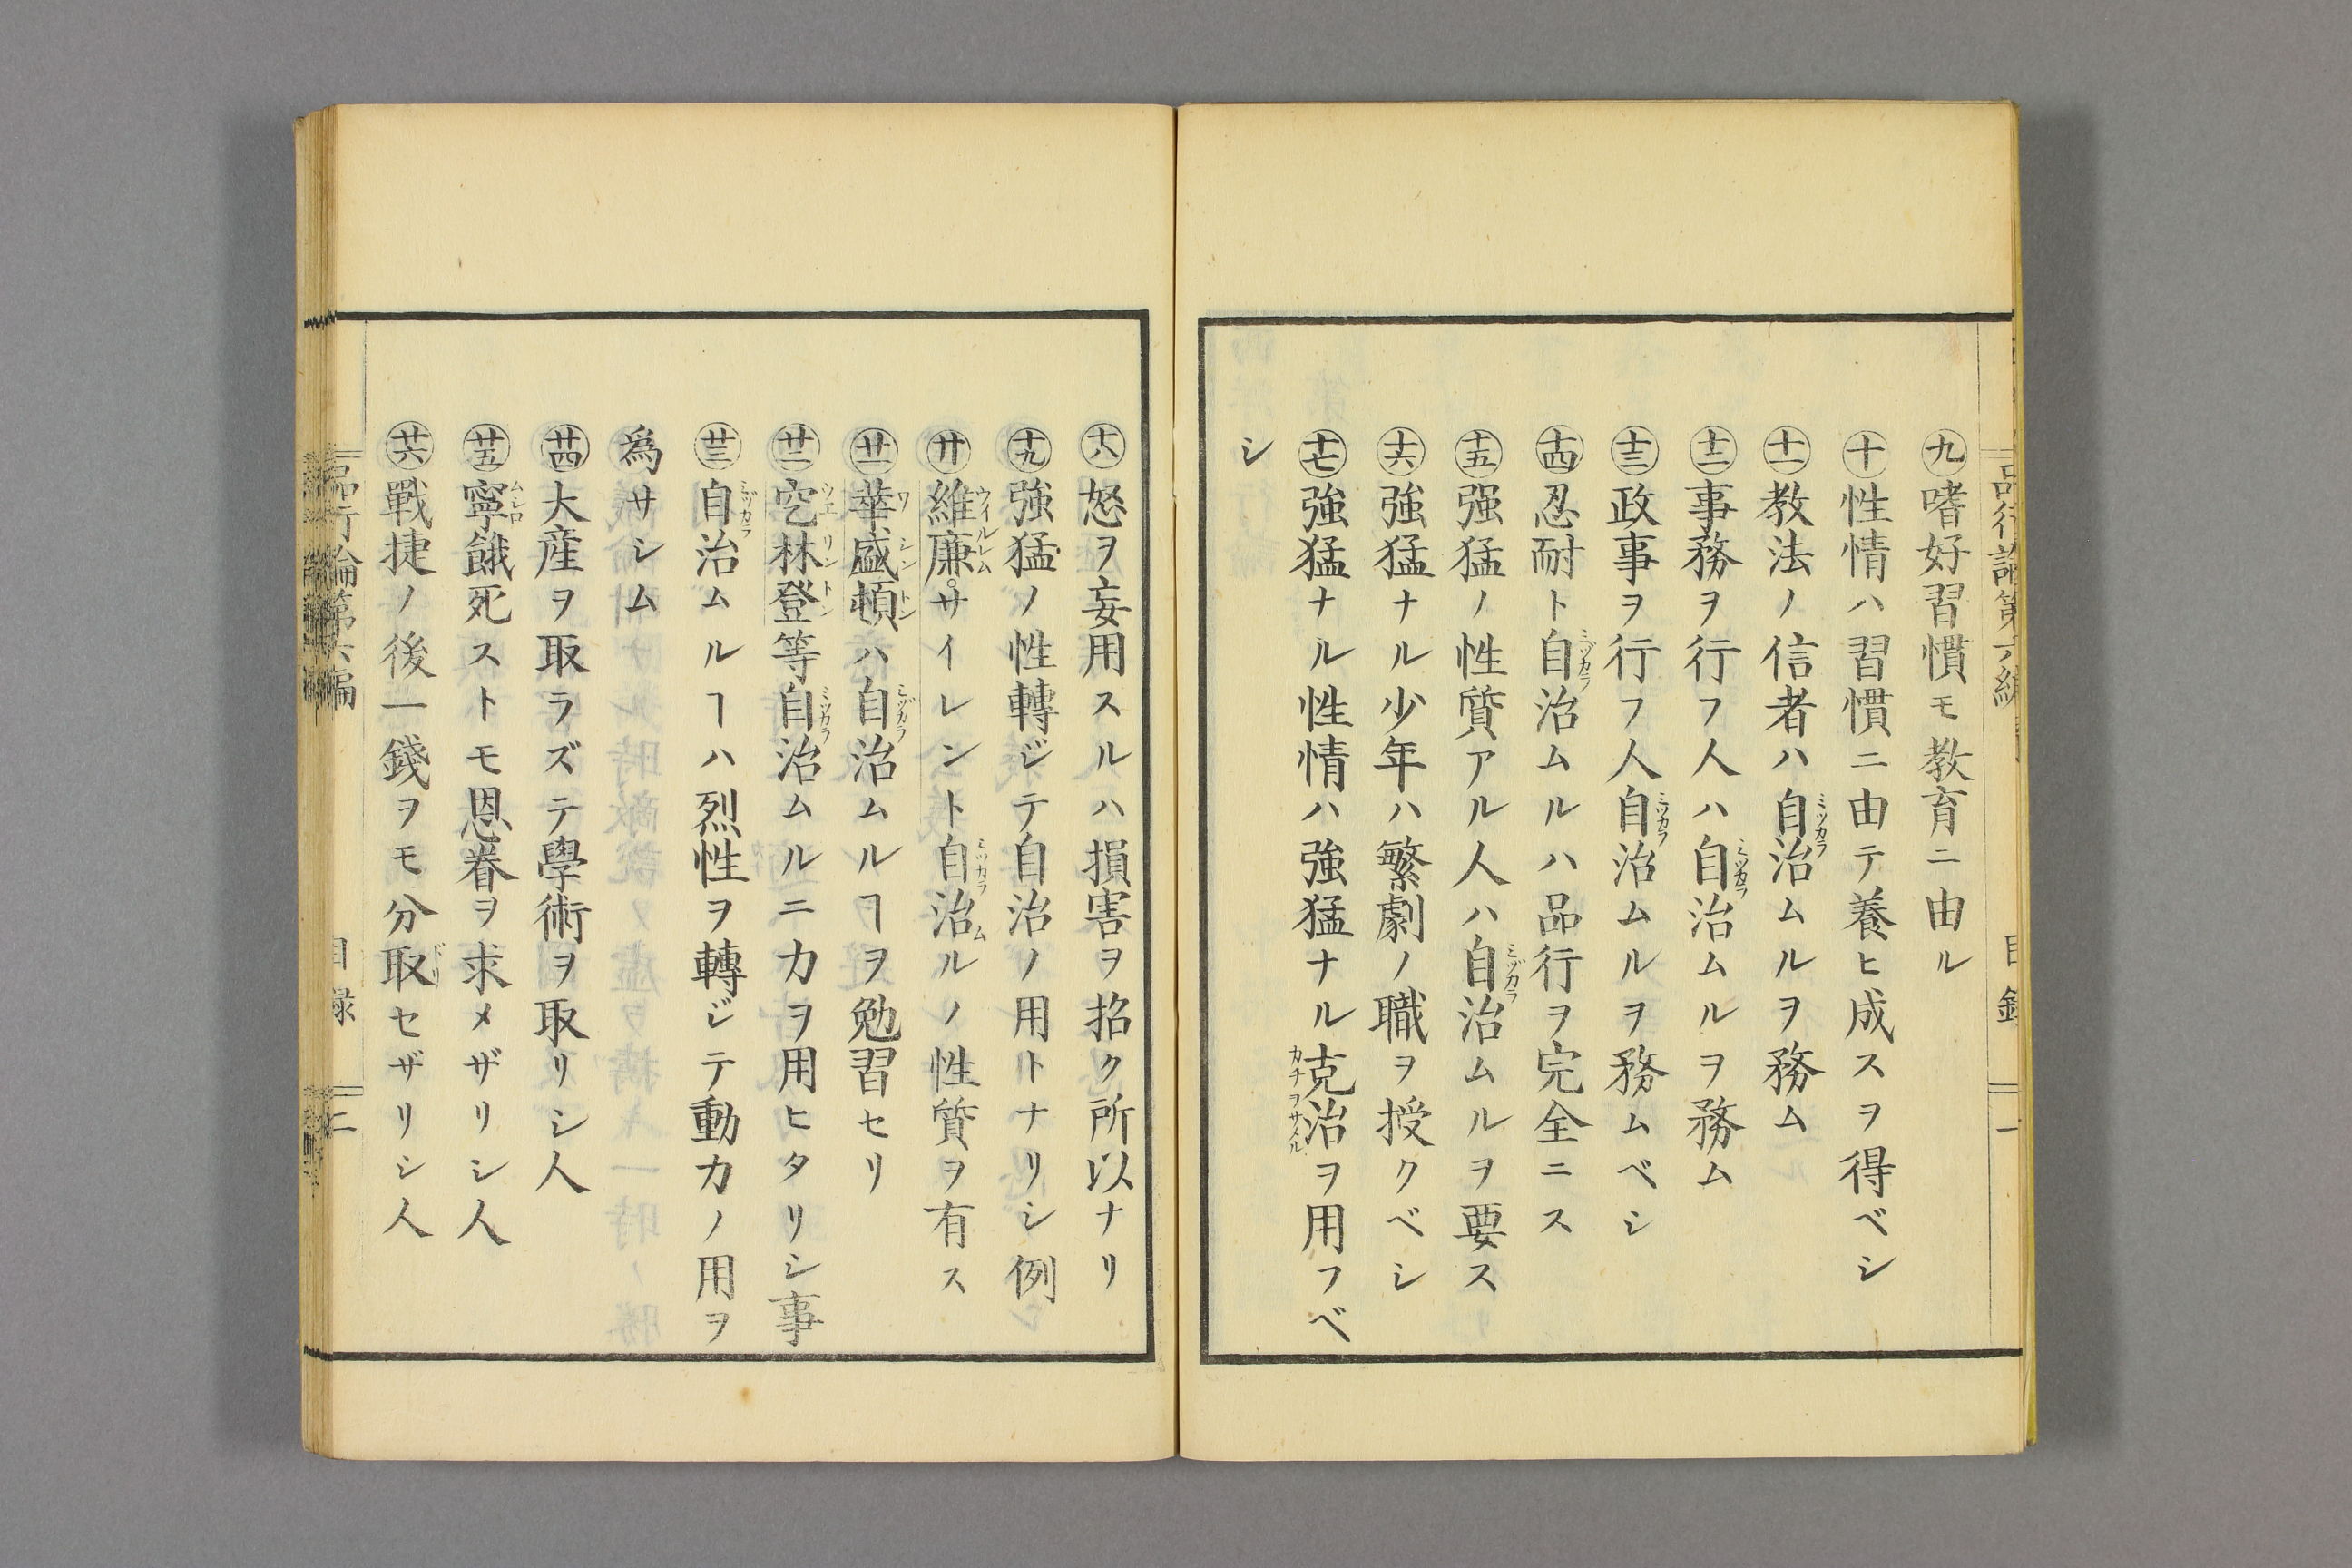 九嗜好習慣モ教育ニ由ル
十性情ハ習慣ニ由テ養ヒ成スヲ得ベシ
十一教法ノ信者ハ自治ムルヲ務ム
十二事務ヲ行フ人ハ自治ムルヲ務ム
十三政事ヲ行フ人自治ムルヲ務ムベシ
十四忍耐ト自治ムルハ品行ヲ完全ニス
十五强猛ノ性質アル人ハ自治ムルヲ要ス
十六強猛ナル少年ハ繁劇ノ職ヲ授クベシ
十七強猛ナル性情ハ強猛ナル克治ヲ用フベ
シ
十八怒ヲ妄用スルハ損害ヲ招ク所以ナリ
十九強猛ノ性轉ジテ自治ノ用トナリシ例
廿維廉。サイレント自治ムルノ性質ヲ有ス
廿一華盛頓ハ自治ムルヿヲ勉習セリ
廿二空林登等自治ムルニ力ヲ用ヒタリシ事
廿三自治ムルヿハ烈性ヲ轉ジテ動力ノ用ヲ
爲サシム
廿四大産ヲ取ラズテ學術ヲ取リシ人
廿五寧餓死ストモ恩眷ヲ求メザリシ人
廿六戰捷ノ後一錢ヲモ分取セザリシ人
品行論第六編 目録 二